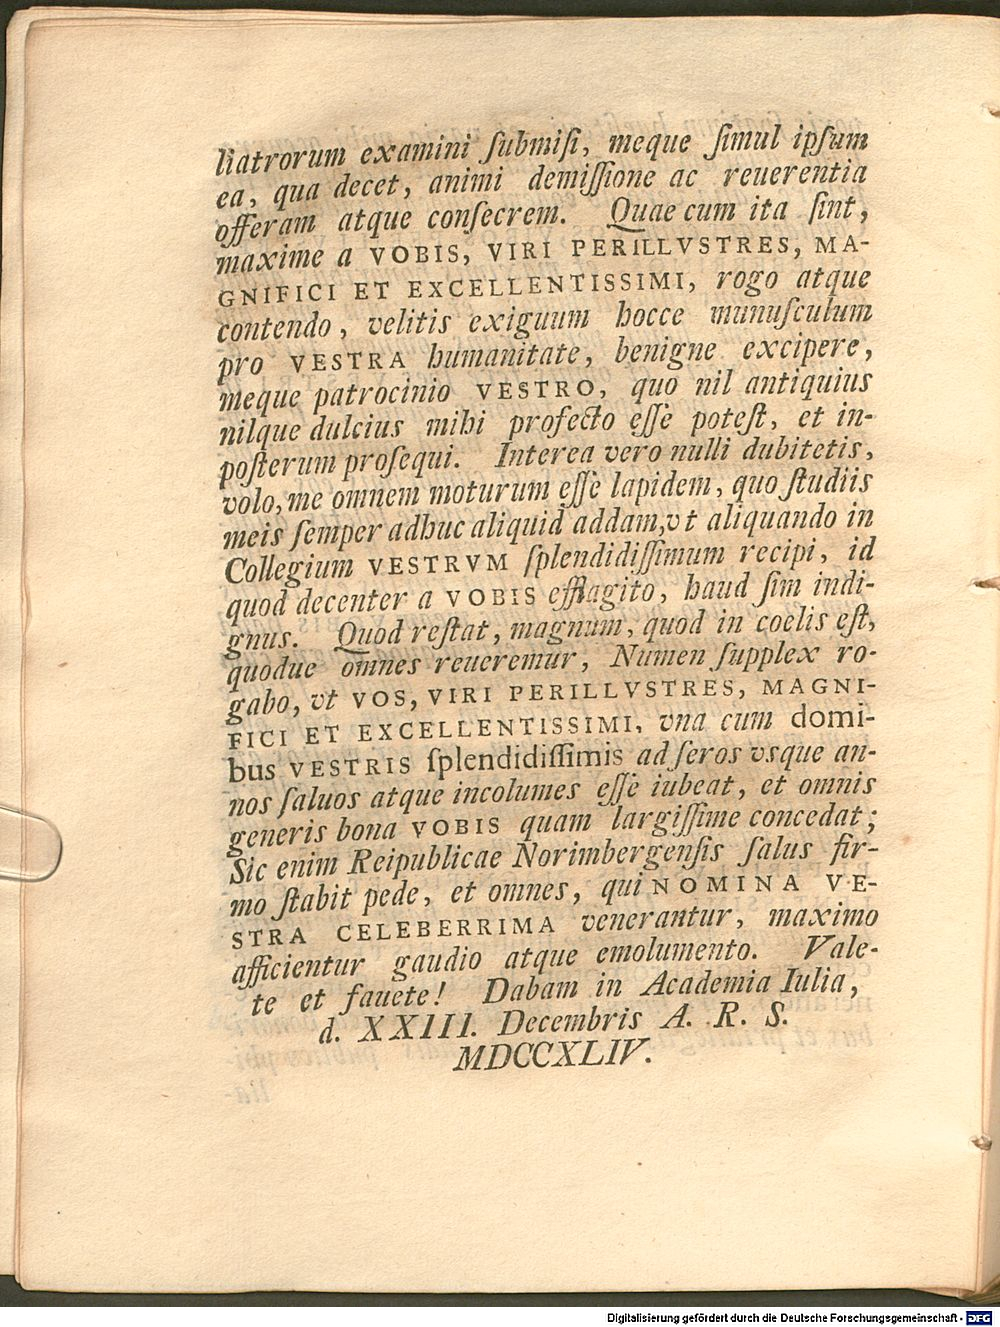 liatrorum examini ſubmiſi, meque ſimul ipſum
ea, qua decet, animi demiſſione ac reuerentia
offeram atque conſecrem. Quae cum ita ſint,
maxime a VOBIS, VIRI PERILLVSTRES, MA-
GNIFICI ET EXCELLENTISSIMI, rogo atque
contendo, velitis exiguum hocce munuſculum
pro VESTRA humanitate, benigne excipere,
meque patrocinio VESTRO, quo nil antiquius
nilque dulcius mihi profecto eſſe poteſt, et in-
poſterum proſequi. Interea vero nulli dubitetis,
volo, me omnem moturum eſſe lapidem, quo ſtudiis
meis ſemper adhuc aliquid addam, vt aliquando in
Collegium VESTRVM ſplendidiſſimum recipi, id
quod decenter a VOBIS efflagito, haud ſim indi-
gnus. Quod reſtat, magnum, quod in coelis eſt,
quodue omnes reueremur, Numen ſupplex ro-
gabo, vt VOS, VIRI PERILLVSTRES, MAGNI-
FICI ET EXCELLENTISSIMI, vna cum domi-
bus VESTRIS ſplendidiſſimis ad ſeros vsque an-
nos ſaluos atque incolumes eſſe iubeat, et omnis
generis bona VOBIS quam largiſſime concedat;
Sic enim Reipublicae Norimbergenſis ſalus fir-
mo ſtabit pede, et omnes, qui NOMINA VE-
STRA CELEBERRIMA venerantur, maximo
afficientur gaudio atque emolumento. Vale-
te et fauete! Dabam in Academia Iulia,
d. XXIII. Decembris A. R. S.
MDCCXLIV.
Digitalisierung gefördert durch die Deutsche Forschungsgemeinschaft - DFG